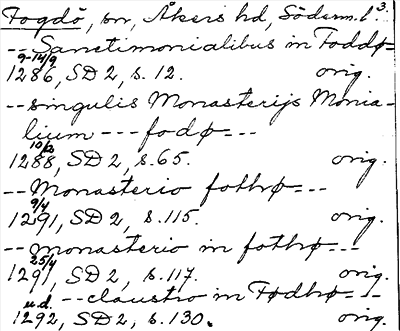 Fogdö, sn, Åkers hd, Söderm. l. 3.
-- Sanctimonialibus in Foddø-
9-14/9
1286, SD 2, s. 12. orig.
-- singulis Monasterijs Monia-
lium --- fodø ---
10/2
1288, SD 2, s. 65. orig.
-- Monasterio fothø ---
9/4
1291, SD 2, s. 115. orig.
-- monasterio in fothø ---
25/4
1291, SD 2, s. 117. orig.
u.d. -- claustro in Fødhø ---
1292, SD 2, s. 130. orig.